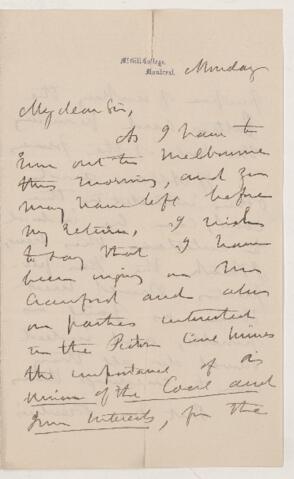 McGill College,
Montreal.
Monday
My dear Sir,
As I have to
run out to Melbourne
this morning, and you
may have left before
my return, I wish
to say that I have
been urging on Mr
Crawford and also
on parties interested
in the Pictou Coal Mines
the importance of a
Union of the Coal and
Iron Interests, for the